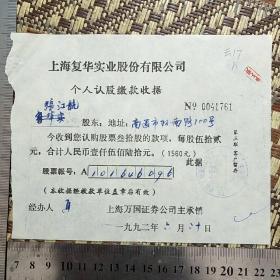 上海复华实业股份有限公司
个人认股缴款收据
№ 0041761
张江航
股东: 地址: 南昌市 路100号
今收到您认购股票叁拾股的款项，每股伍拾贰
元，合计人民币壹仟伍佰陆拾元。（1560元）
此据
股票帐号: A101646096
（本收据经收款单位盖章后有效）
经办人
上海万国证券公司主承销
一九九二年 六月 日
第二联 客户留存